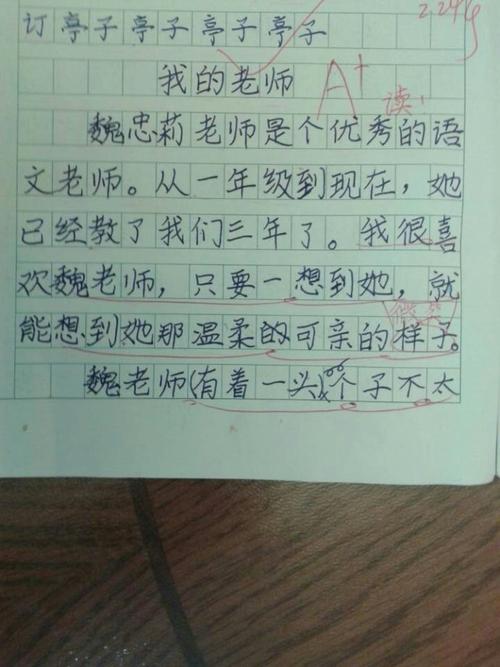 2.24号
订 亭子 亭子 亭子 亭子
我的老师
A+
读!
魏忠莉老师是个优秀的语
文老师。从一年级到现在，她
已经教了我们三年了。我很喜
欢魏老师，只要一想到她，就
能想到她那温柔的可亲的样子。
魏老师(有着一头)个子不太